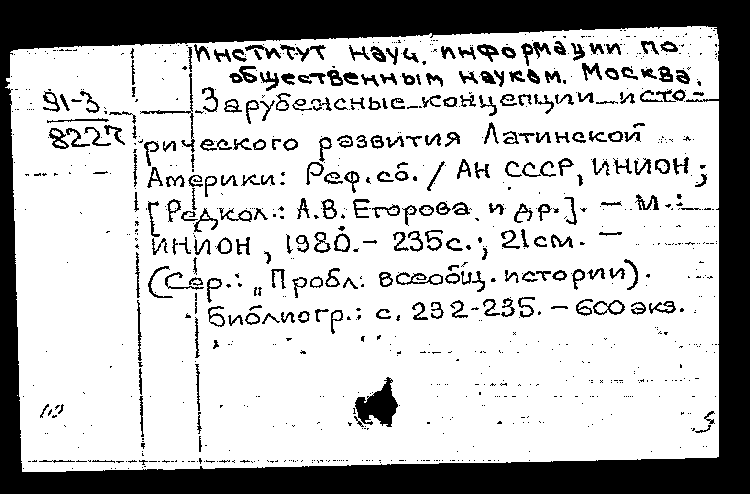 Институт науч. информации по
общественным наукам. Москва.
91-3
8227
Зарубежные концепции исто-
рического развития Латинской
Америки: Реф. сб. / АН СССР, ИНИОН;
[Редкол.: А.В. Егорова и др.]. — М.:
ИНИОН, 1980. — 235с.; 21см. —
(Сер.: „Пробл. всеобщ. истории).
Библиогр.: с. 232-235. — 600 экз.